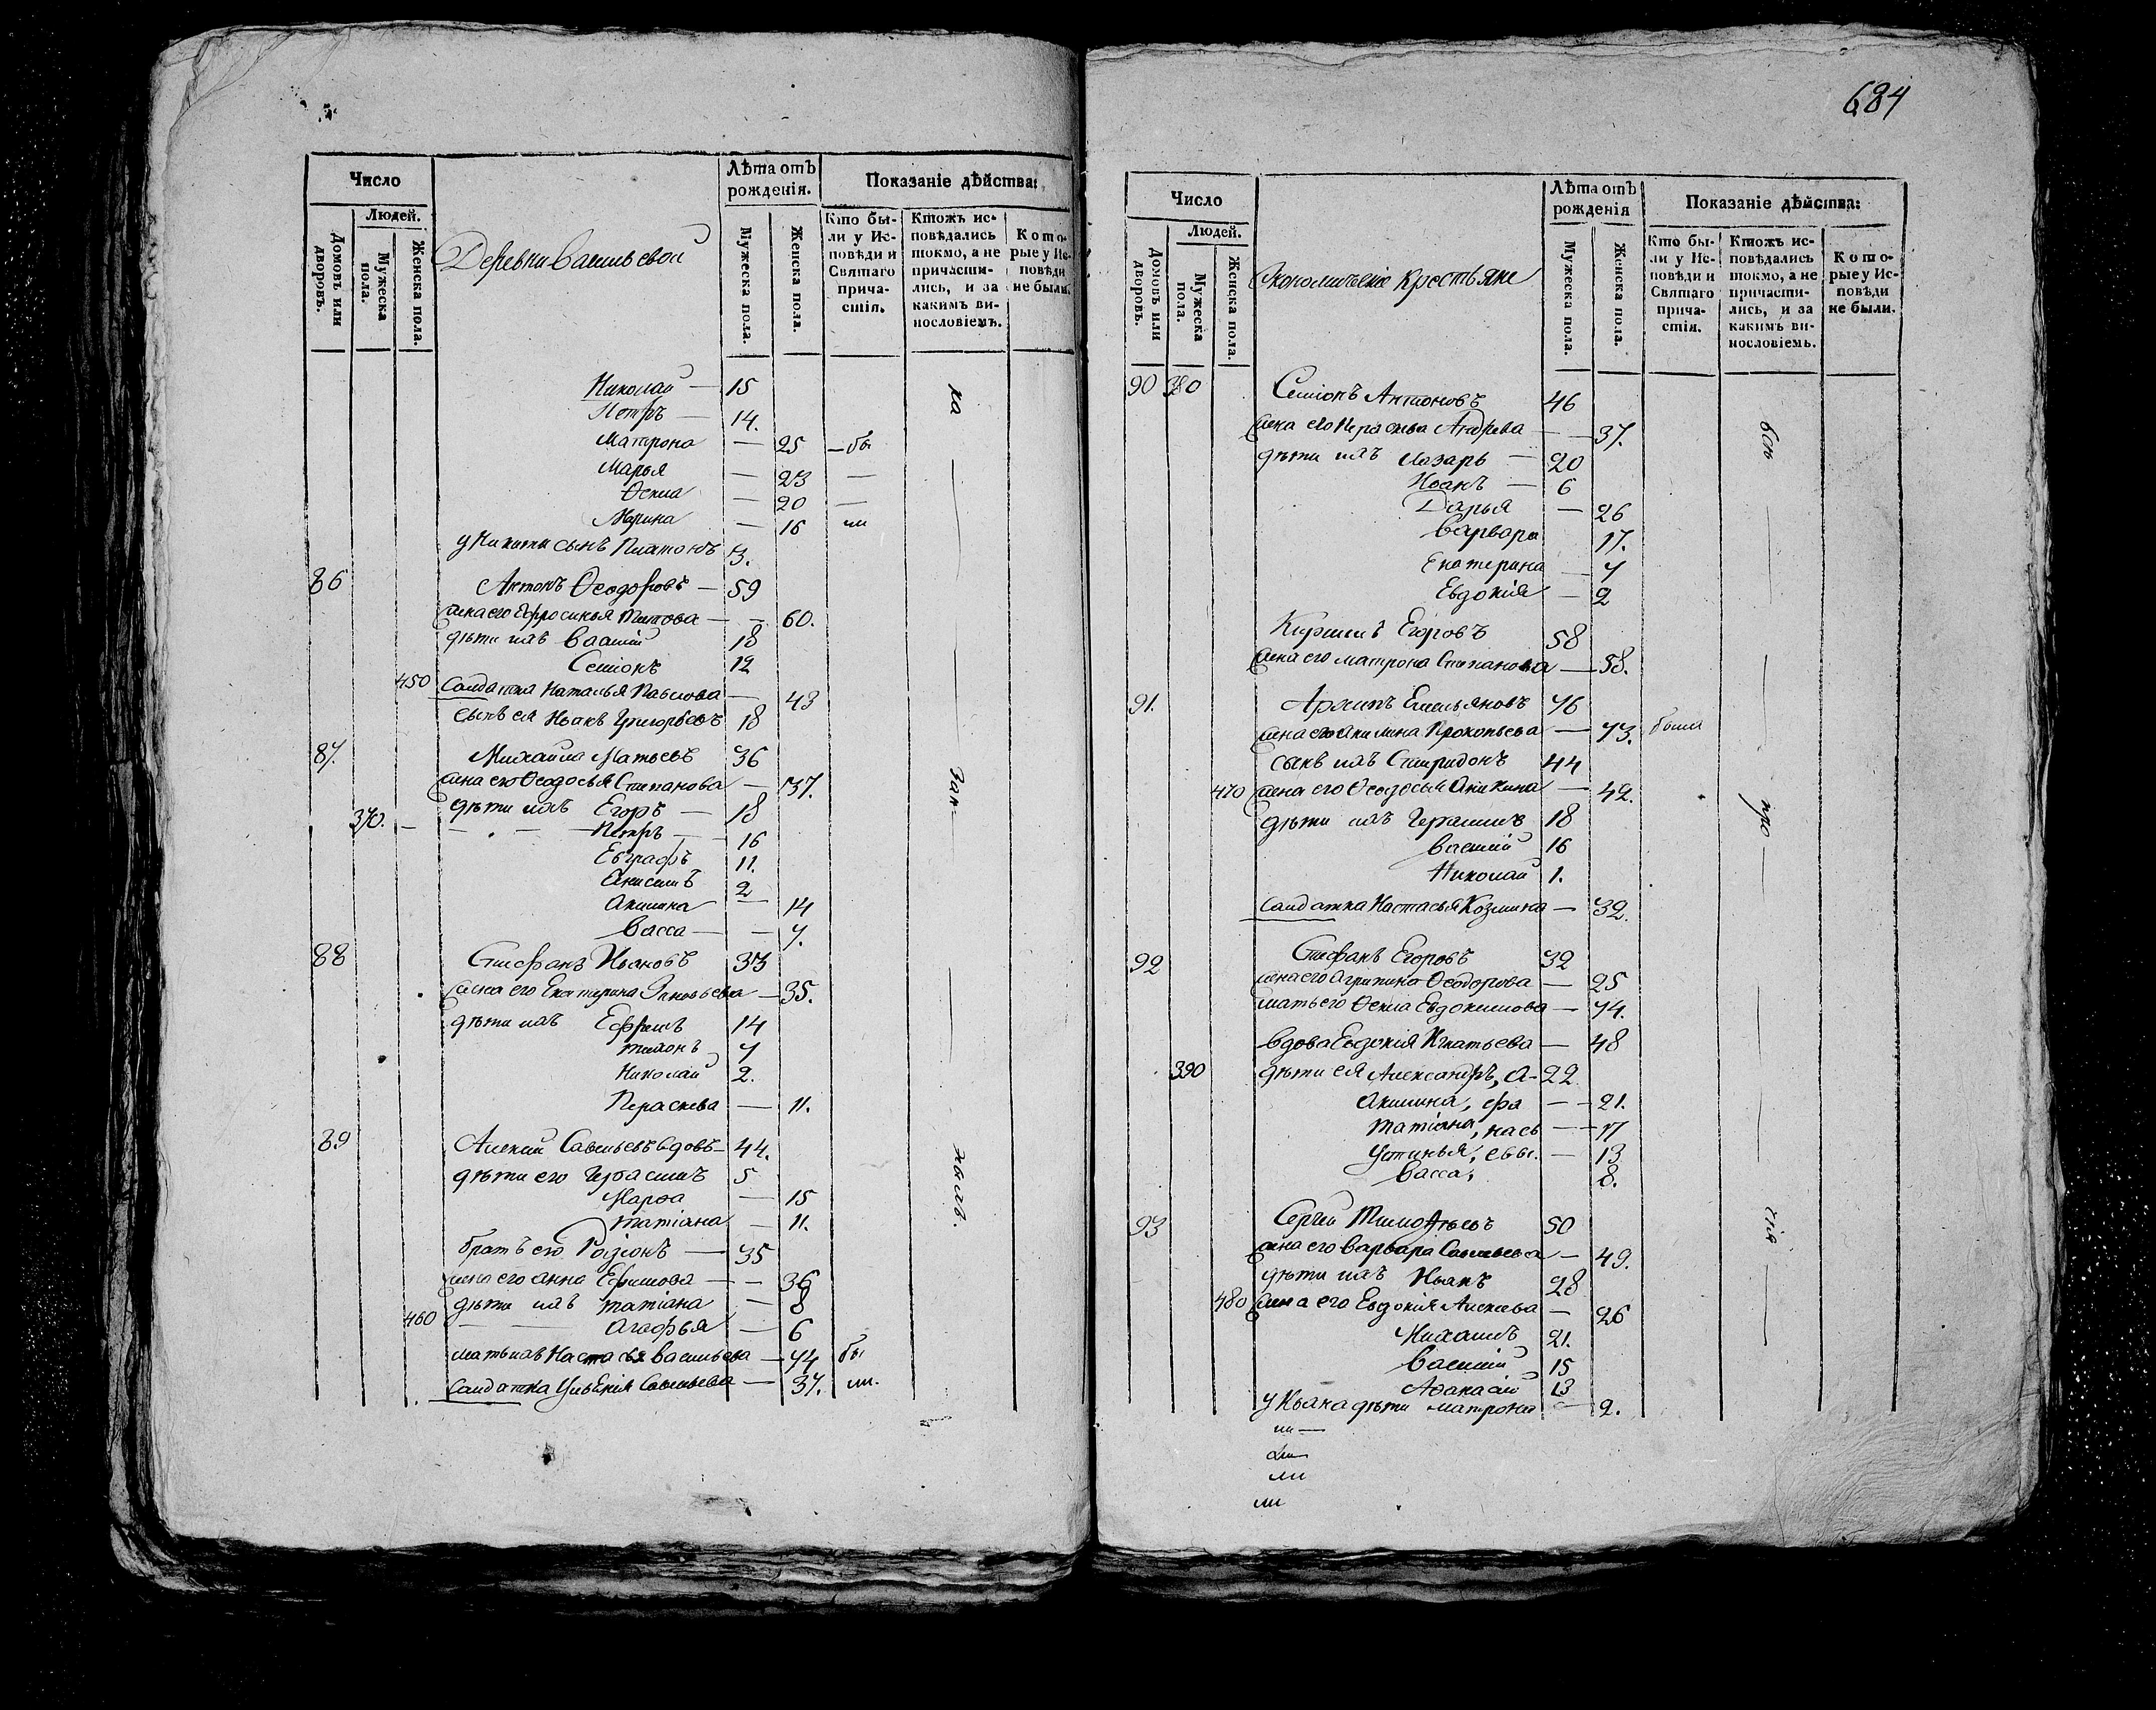 Число
Людей.
Домовъ или дворовъ.
Мужеска пола.
Женска пола.
Деревни Васильевой
Лѣта отъ рожденія.
Мужеска пола.
Женска пола.
Показаніе дѣйства:
Кто были у Исповѣди и Святаго причастія.
Ктожъ исповѣдались токмо, а не причастились, и за какимъ винословіемъ.
Которые у Исповѣди не были.
Николай — 15
Петръ — 14.
Матрона — 25 — бы
Марья — 23 —
Ѳекла — 20 —
Марина — 16 ли
у Никиты сынъ Платонъ 3.
86 Антонъ Ѳеодоровъ — 59
жена его Ефросинья Титова — 60.
дѣти ихъ Василій 18
Семіонъ 12
450 Солдатка Наталья Павлова — 43
сынъ ея Иванъ Григорьевъ 18
87. Михайла Матвевъ 36
жена его Ѳеодосья Степанова — 37.
дѣти ихъ Егоръ — 18
370. — Петръ — 16
Евграфъ 11.
Анисимъ 2
Акилина — 14
Васса — 7.
88 Стефанъ Ивановъ 33
жена его Екатерина Зиновьева — 35.
дѣти ихъ Ефремъ 14
Тихонъ 7
Николай 2.
Пераскева — 11.
89 Алексій Савельевъ вдовъ — 44.
дѣти его Герасимъ 5
Марѳа — 15
Татіана — 11.
братъ его Родіонъ — 35
жена его Анна Ефимова — 36
дѣти ихъ Татіана — 8
460 Агафья — 6
мать ихъ Настасья Васильева — 74 бы
Солдатка Ульянія Савельева — 37. ли.
ка
зан
комъ.
684
Число
Людей.
Домовъ или дворовъ.
Мужеска пола.
Женска пола.
Экономическіе Крестьяне
Лѣта отъ рожденія
Мужеска пола.
Женска пола.
Показаніе дѣйства:
Кто были у Исповѣди и Святаго причастія.
Ктожъ исповѣдались токмо, а не причастились, и за какимъ винословіемъ.
Которые у Исповѣди не были.
90 380 Семіонъ Антоновъ 46
жена его Пераскева Андреева — 37.
дѣти ихъ Лазарь — 20
Иванъ — 6
Дарья — 26
Варвара 17.
Екатерина — 7
Евдокія — 2
Кирилъ Егоровъ 58
жена его Матрона Степанова — 58.
91. Архипъ Емельяновъ 76
жена его Акилина Прокопьева — 73. была
сынъ ихъ Спиридонъ 44
470 жена его Ѳеодосья Аникина — 42.
дѣти ихъ Герасимъ 18
Василій 16
Николай 1.
Солдатка Настасья Козмина — 32.
92 Стефанъ Егоровъ 32
жена его Агрипина Ѳеодорова — 25
мать его Ѳекла Евдокимова — 74.
вдова Евдокія Игнатьева — 48
390 дѣти ея Александръ, а — 22
Акилина, фа — 21.
Татіана, насъ — 17
Устинья, евы. — 13
Васса, 8.
93 Сергей Тимоѳеевъ 50
жена его Варвара Савельева — 49.
дѣти ихъ Иванъ 28
480 жена его Евдокія Алексеева — 26
Михаилъ 21.
Василій 15
Аѳанасій 13
у Ивана дѣти Матрона — 2.
ли —
ли
ли